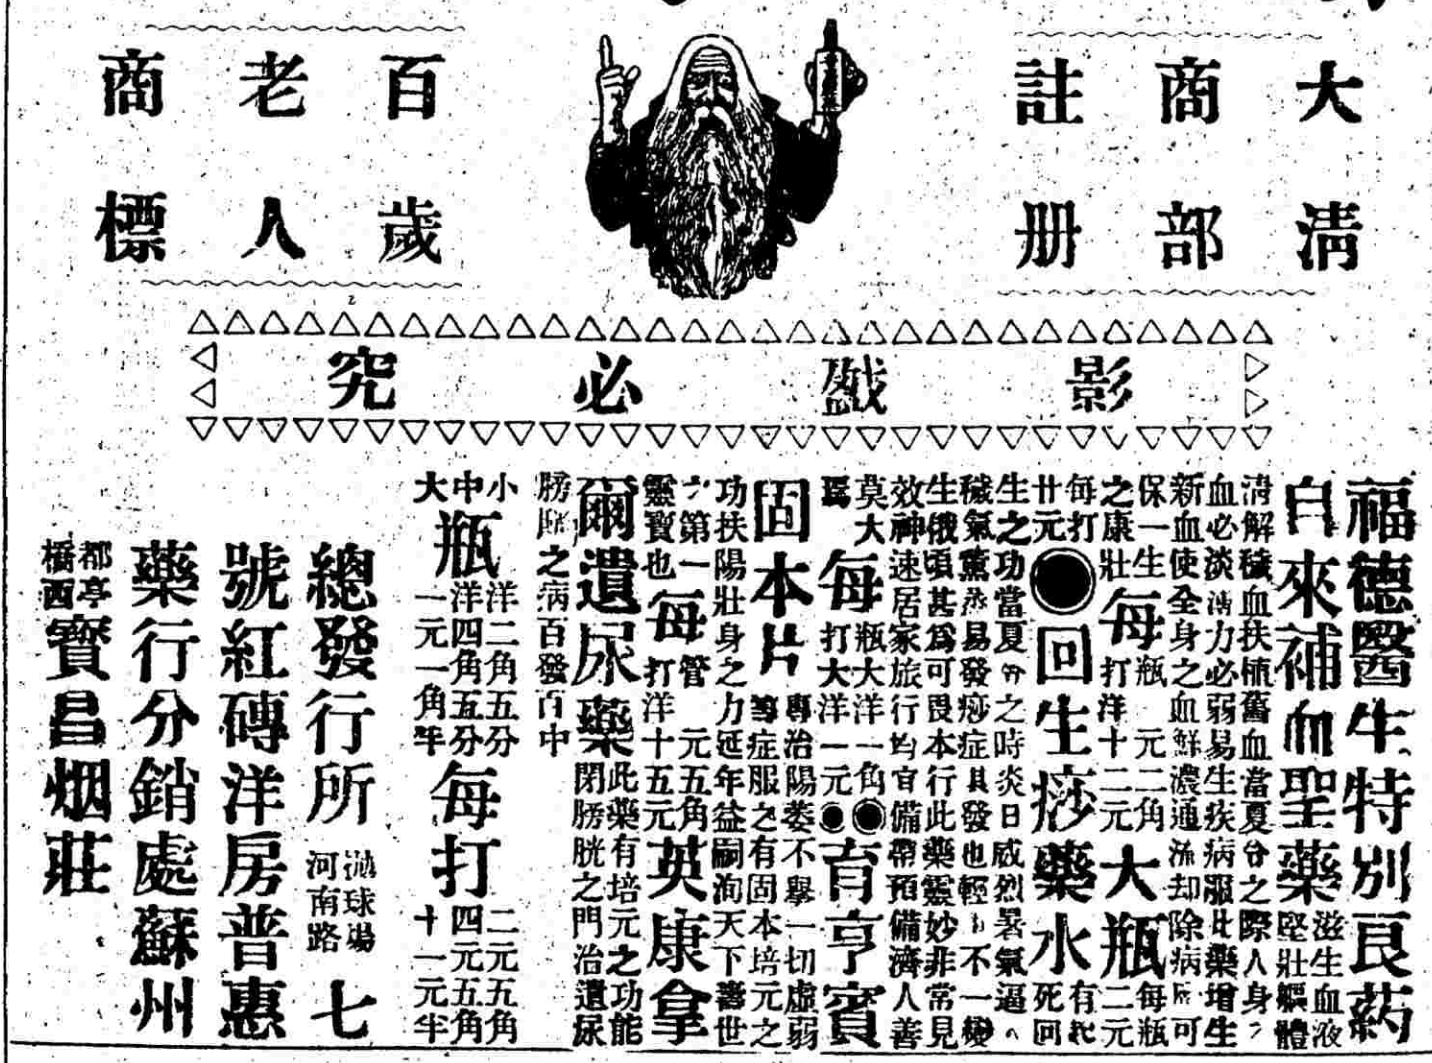 大清
商部
註册
百歲
老人
商標
影戤必究
福德醫生特別良药
自來補血聖藥 滋生血液堅壯軀體
清解穢血扶植舊血當夏令之際人身之
血必淡薄力必弱易生疾病服此藥增生
新血使全身之血鮮濃通流却除病 可
保一生之康壯 每瓶一元二角 打洋十二元 大瓶每瓶二元
每打廿元 ◉回生痧藥水 有起死回
生之功當夏令之時炎日感烈暑氣逼人
穢氣薰蒸易發痧症其發也輕者不一變
生俄頃甚為可畏本行此藥靈妙非常見
效神速居家旅行均宜備帶預備濟人善
莫大焉 每瓶大洋一角 打大洋一元 ◉◉育亨賓
固本片 專治陽萎不舉一切虛弱等症服之有固本培元之
功扶陽壯身之力延年益嗣洵天下壽世
之第一靈寶也 每管一元五角 打洋十五元 英康拿
爾遺尿藥 此藥有培元之功能閉膀胱之門治遺尿
膀胱之病百發百中
小瓶洋二角五分 每打二元五角
中瓶洋四角五分 每打四元五角
大瓶一元一角半 每打十一元半
總發行所 抛球場河南路 七
號紅磚洋房普惠
藥行分銷處蘇州
都亭橋西 寳昌烟莊